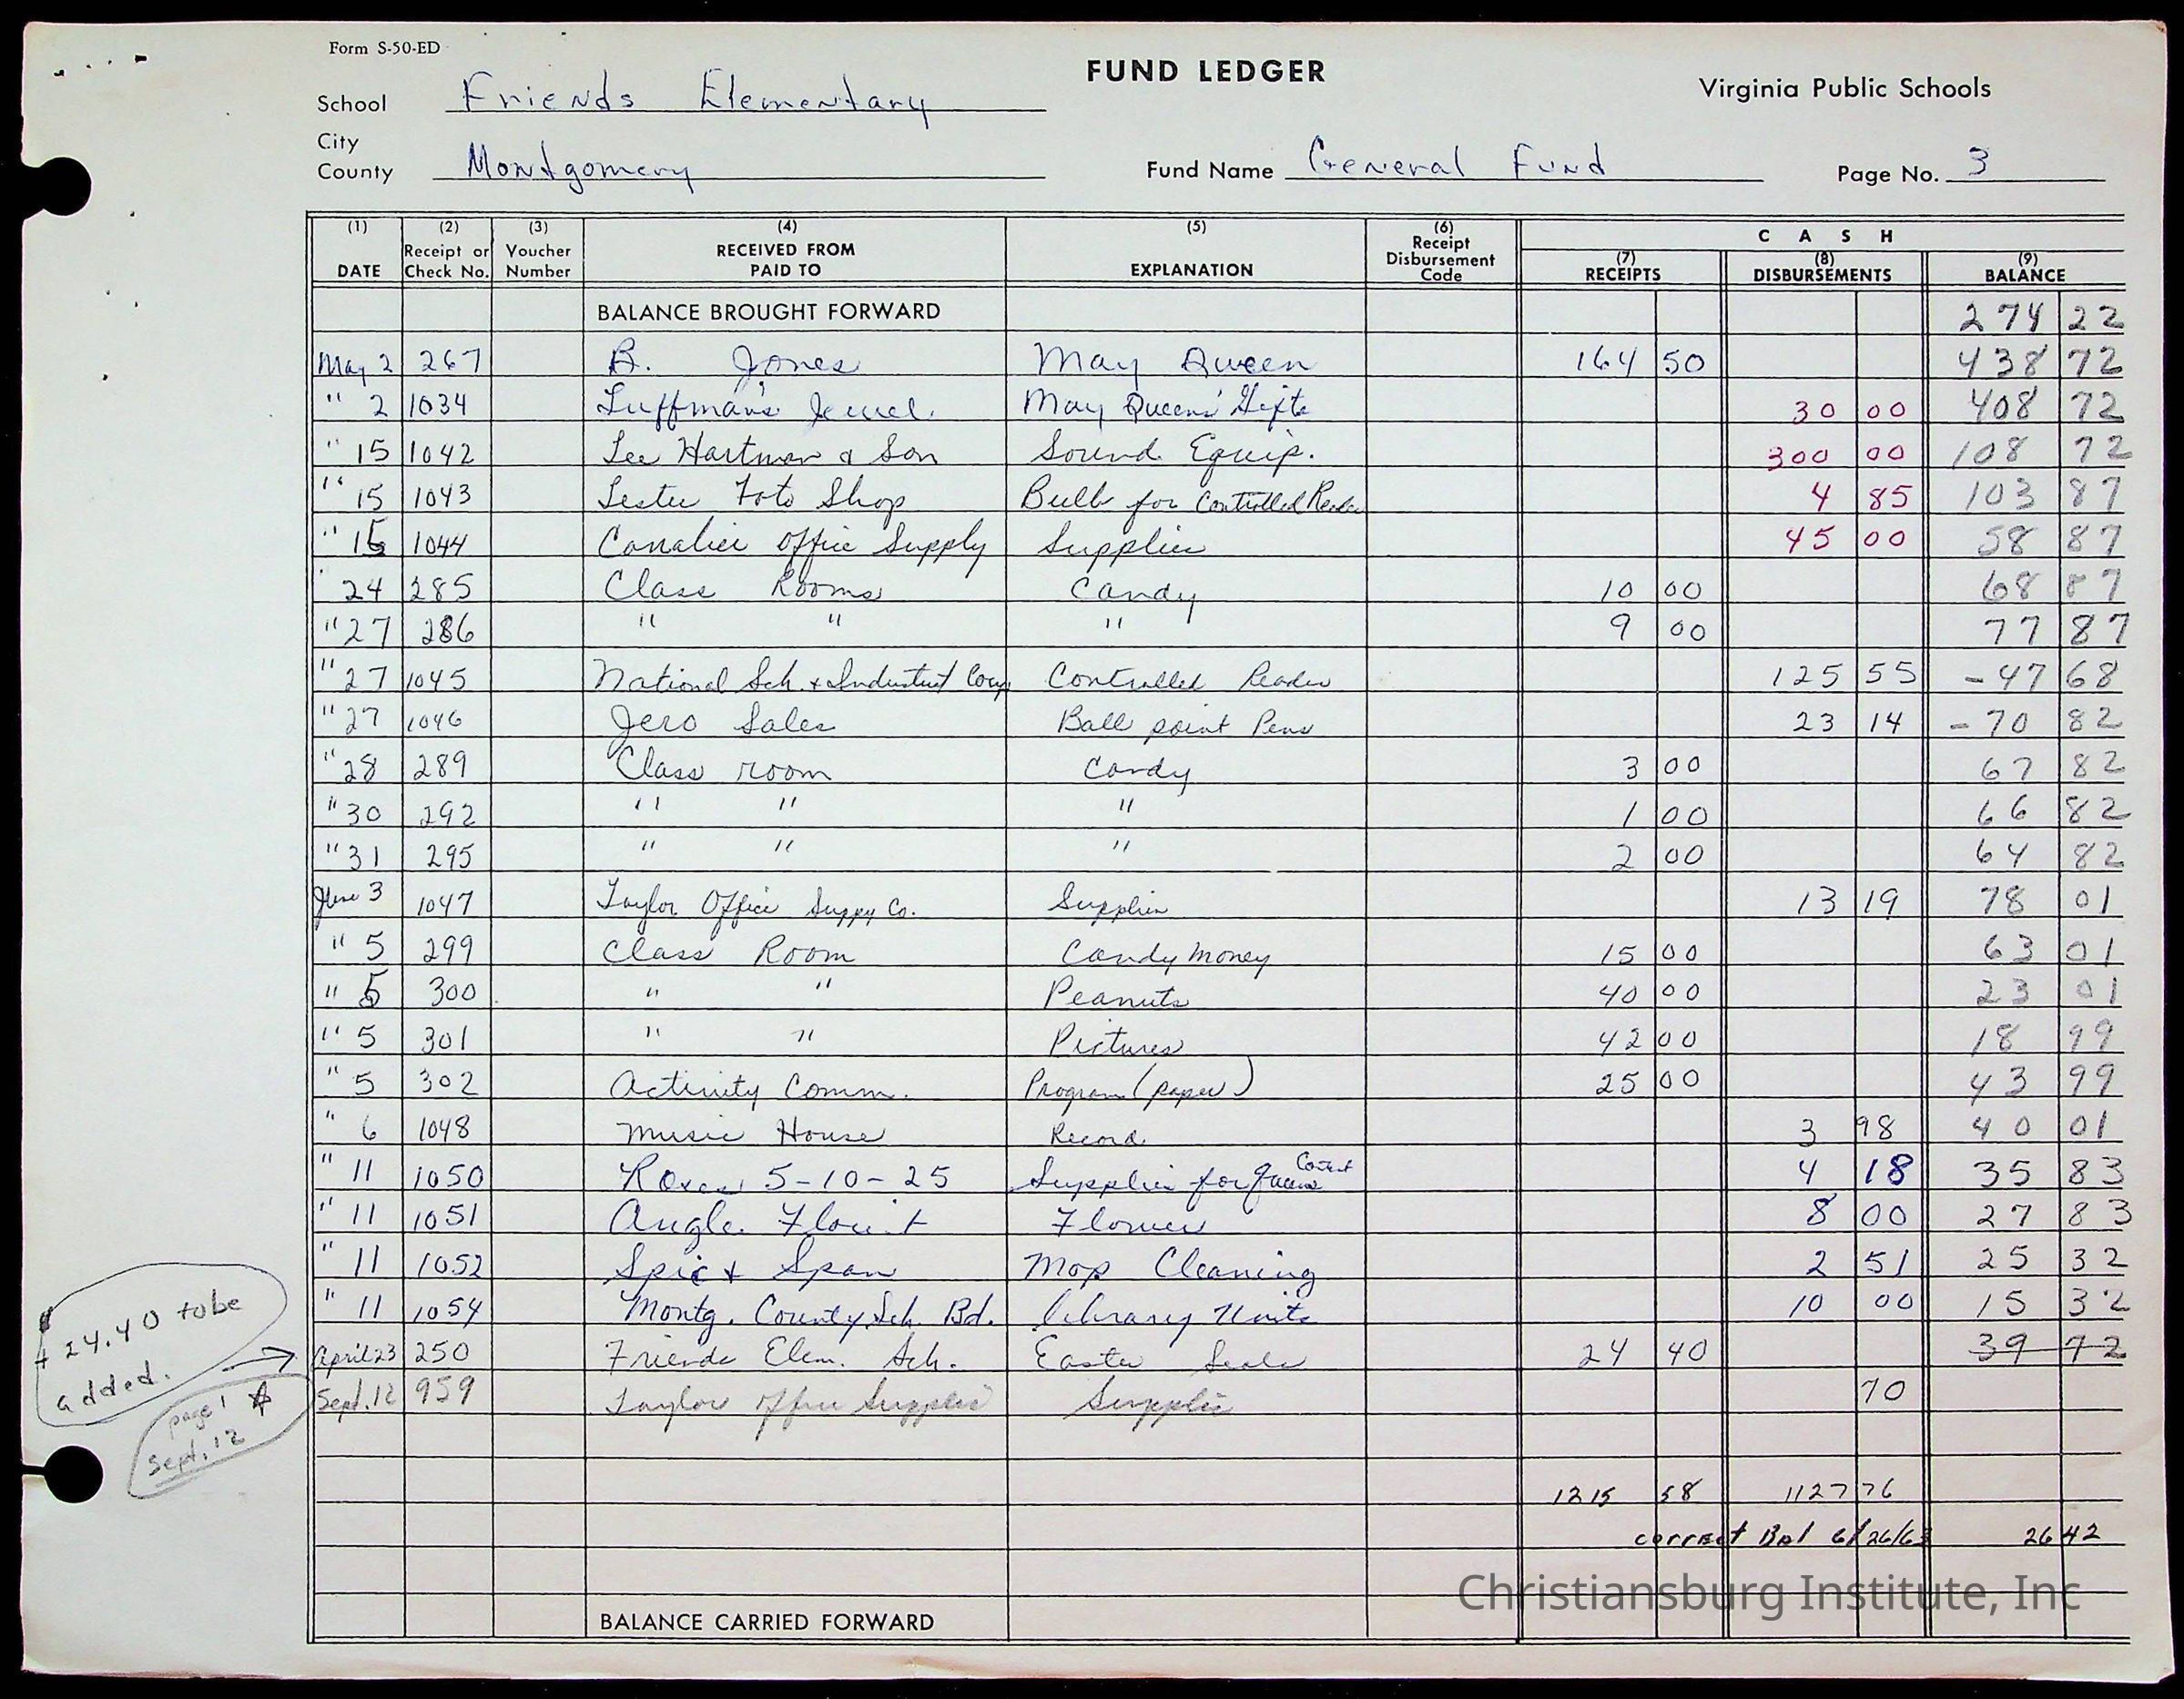 Form S-50-ED
FUND LEDGER
Virginia Public Schools
School Friends Elementary
City
County Montgomery
Fund Name General Fund
Page No. 3
(1) (2) (3) (4) (5) (6) C A S H
DATE Receipt or Check No. Voucher Number RECEIVED FROM PAID TO EXPLANATION Receipt Disbursement Code (7) RECEIPTS (8) DISBURSEMENTS (9) BALANCE
BALANCE BROUGHT FORWARD 274 22
May 2 267 B. Jones May Queen 164 50 438 72
" 2 1034 Luffman's Jewel. May Queens' Gifts 30 00 408 72
" 15 1042 Lee Hartman & Son Sound Equip. 300 00 108 72
" 15 1043 Lester Foto Shop Bulb for Controlled Reader 4 85 103 87
" 15 1044 Office Supply Supplies 45 00 58 87
" 24 285 Class Rooms Candy 10 00 68 87
" 27 286 " " " 9 00 77 87
" 27 1045 National Sch. & Industrial Corp Controlled Reader 125 55 -47 68
" 27 1046 Jero Sales Ball point Pens 23 14 -70 82
" 28 289 Class room Candy 3 00 67 82
" 30 292 " " " 1 00 66 82
" 31 295 " " " 2 00 64 82
June 3 1047 Taylor Office Suppy Co. Supplies 13 19 78 01
" 5 299 Class Room Candy Money 15 00 63 01
" 5 300 " " Peanuts 40 00 23 01
" 5 301 " " Pictures 42 00 18 99
" 5 302 Activity Comm. Program (paper) 25 00 43 99
" 6 1048 Music House Record 3 98 40 01
" 11 1050 Roses 5-10-25 Supplies for Queens Contest 4 18 35 83
" 11 1051 Angle Florist Flower 8 00 27 83
" 11 1052 Spic & Span Mop Cleaning 2 51 25 32
" 11 1054 Montg. County Sch. Bd. Library Units 10 00 15 32
+ 24.40 to be added.
April 23 250 Friends Elem. Sch. Easter Seals 24 40 39 72
page 1 Sept. 12
Sept. 12 959 Taylor Office Supplies Supplies 70
1215 58 1127 76
correct Bal 6/26/63 26 42
BALANCE CARRIED FORWARD
Christiansburg Institute, Inc